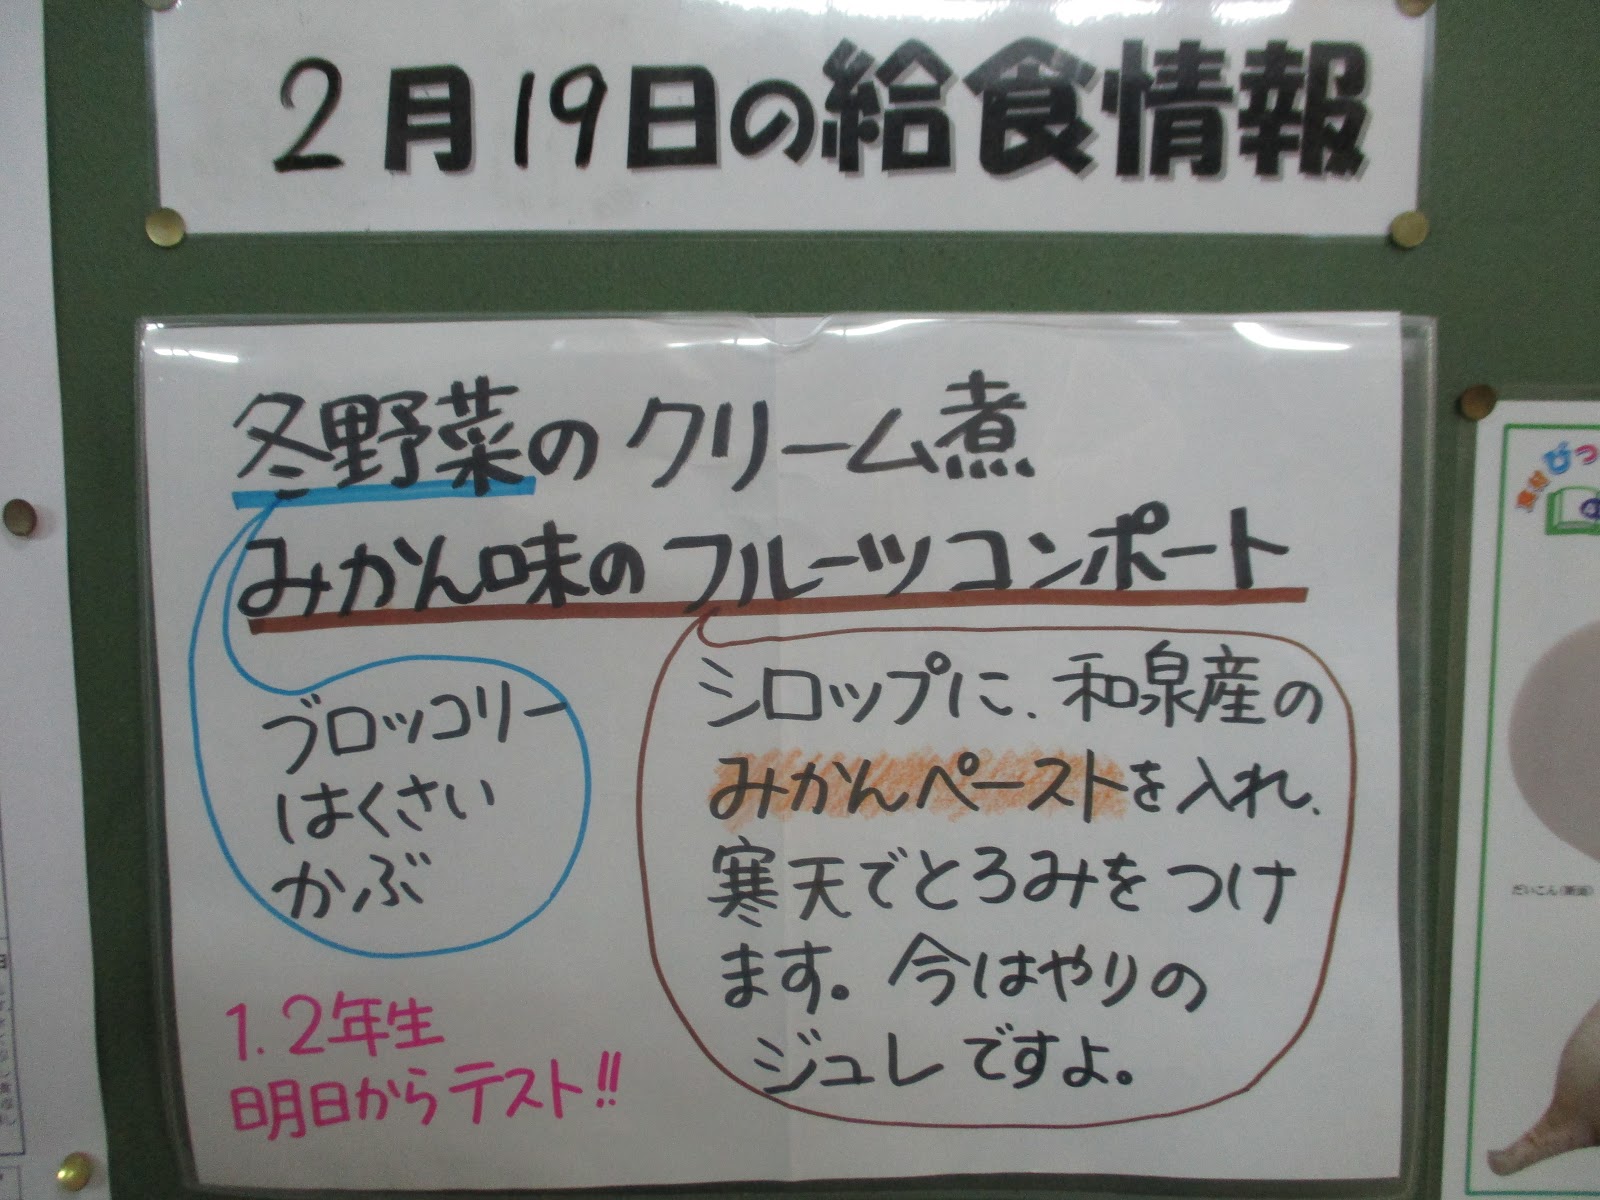 2月19日の給食情報
冬野菜のクリーム煮
みかん味のフルーツコンポート
ブロッコリー
はくさい
かぶ
シロップに、和泉産の
みかんペーストを入れ、
寒天でとろみをつけ
ます。今はやりの
ジュレですよ。
1.2年生
明日からテスト!!
だいこん(断面)